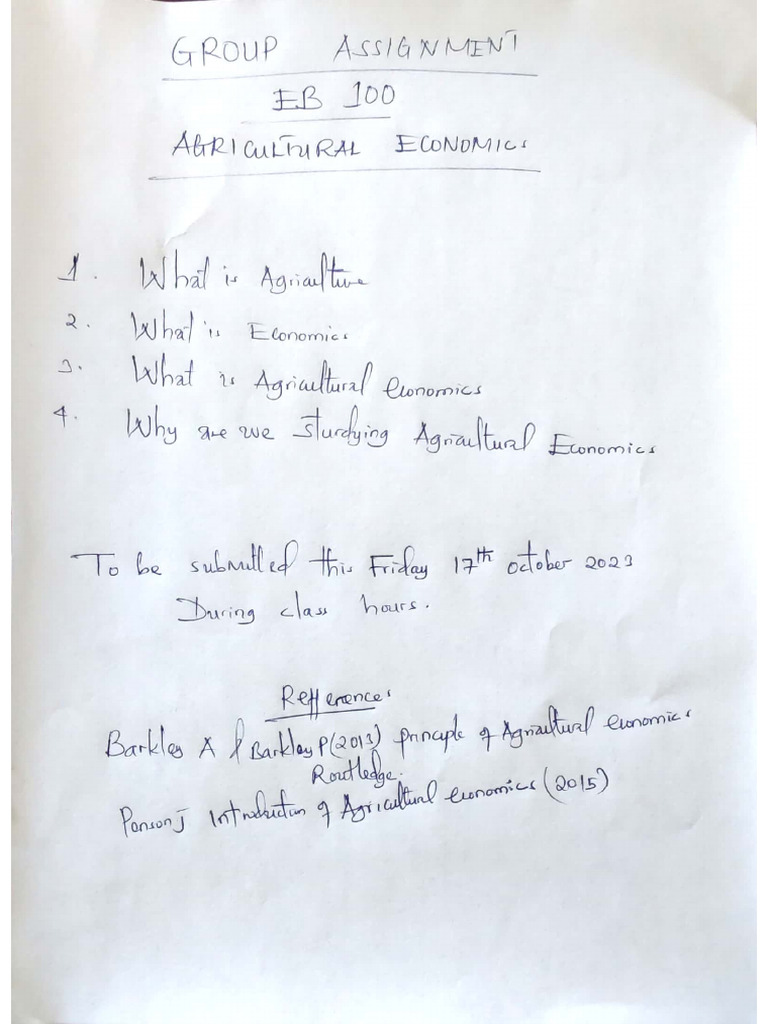 GROUP ASSIGNMENT
EB 100
AGRICULTURAL ECONOMICS
1. What is Agriculture
2. What is Economics
3. What is Agricultural economics
4. Why are we sturdying Agricultural Economics
To be submitted this Friday 17th october 2023
During class hours.
Refferences
Barkley A & Barkley P (2013) principle of Agricultural economics
Routledge.
Ponson J Introduction of Agricultural economics (2015)